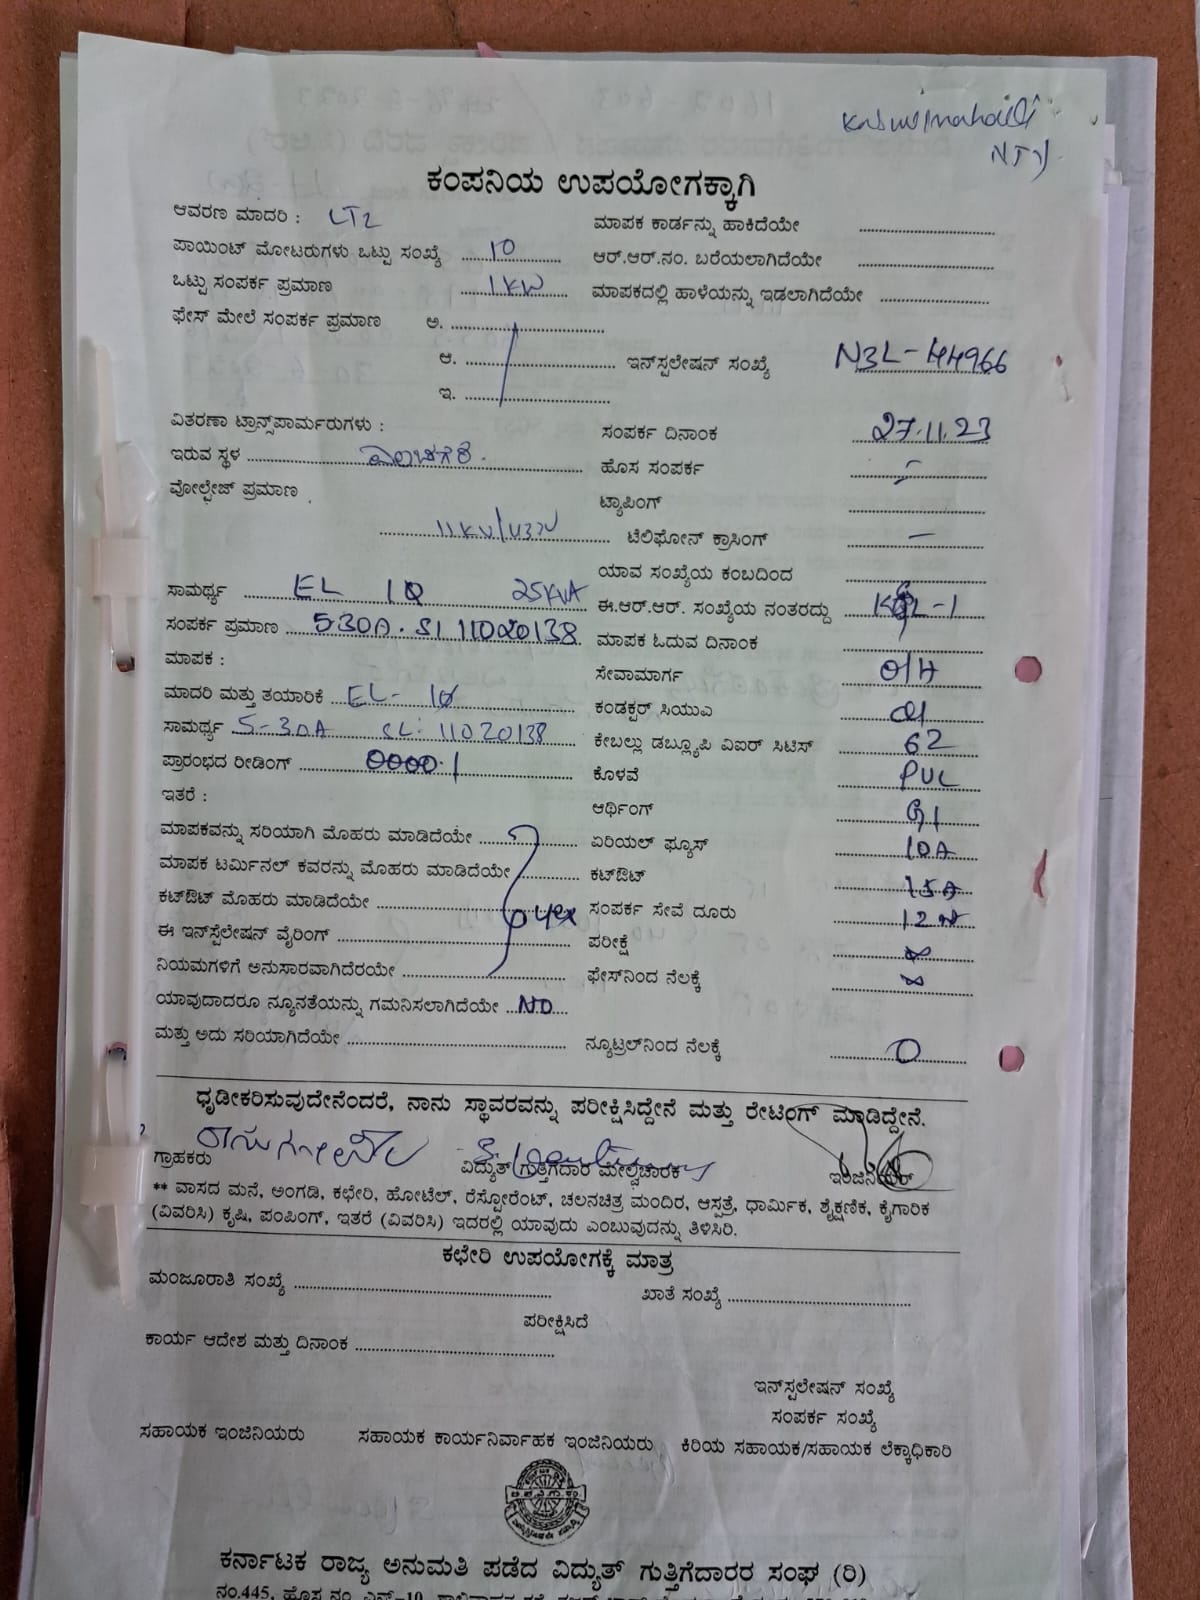 ಕಂಪನಿಯ ಉಪಯೋಗಕ್ಕಾಗಿ
ಆವರಣ ಮಾದರಿ : LT2 ಮಾಪಕ ಕಾರ್ಡನ್ನು ಹಾಕಿದೆಯೇ
ಪಾಯಿಂಟ್ ಮೋಟರುಗಳು ಒಟ್ಟು ಸಂಖ್ಯೆ 10 ಆರ್.ಆರ್.ನಂ. ಬರೆಯಲಾಗಿದೆಯೇ
ಒಟ್ಟು ಸಂಪರ್ಕ ಪ್ರಮಾಣ 1KW ಮಾಪಕದಲ್ಲಿ ಹಾಳೆಯನ್ನು ಇಡಲಾಗಿದೆಯೇ
ಫೇಸ್ ಮೇಲೆ ಸಂಪರ್ಕ ಪ್ರಮಾಣ ಅ.
ಆ. ಇನ್‌ಸ್ಪಲೇಷನ್ ಸಂಖ್ಯೆ N3L-44966
ಇ.
ವಿತರಣಾ ಟ್ರಾನ್ಸ್‌ಪಾರ್ಮರುಗಳು : ಸಂಪರ್ಕ ದಿನಾಂಕ 27.11.23
ಇರುವ ಸ್ಥಳ ಹೊಸ ಸಂಪರ್ಕ -
ವೋಲ್ಟೇಜ್ ಪ್ರಮಾಣ ಟ್ಯಾಪಿಂಗ್
11KV/433V ಟೆಲಿಫೋನ್ ಕ್ರಾಸಿಂಗ್ -
ಯಾವ ಸಂಖ್ಯೆಯ ಕಂಬದಿಂದ
ಸಾಮರ್ಥ್ಯ EL 1Φ 25KVA ಈ.ಆರ್.ಆರ್. ಸಂಖ್ಯೆಯ ನಂತರದ್ದು
ಸಂಪರ್ಕ ಪ್ರಮಾಣ 5-30A. Sl 11020138 ಮಾಪಕ ಓದುವ ದಿನಾಂಕ
ಮಾಪಕ : ಸೇವಾಮಾರ್ಗ O/H
ಮಾದರಿ ಮತ್ತು ತಯಾರಿಕೆ EL- 1Φ ಕಂಡಕ್ಟರ್ ಸಿಯುಎ
ಸಾಮರ್ಥ್ಯ 5-30A SL: 11020138 ಕೇಬಲ್ಲು ಡಬ್ಲ್ಯೂಪಿ ವಿಐರ್ ಸಿಟಿಸ್ 62
ಪ್ರಾರಂಭದ ರೀಡಿಂಗ್ 0000.1 ಕೊಳವೆ PVC
ಇತರೆ : ಆರ್ಥಿಂಗ್ GI
ಮಾಪಕವನ್ನು ಸರಿಯಾಗಿ ಮೊಹರು ಮಾಡಿದೆಯೇ ಏರಿಯಲ್ ಫ್ಯೂಸ್ 10A
ಮಾಪಕ ಟರ್ಮಿನಲ್ ಕವರನ್ನು ಮೊಹರು ಮಾಡಿದೆಯೇ ಕಟ್‌ಔಟ್ 15A
ಕಟ್‌ಔಟ್ ಮೊಹರು ಮಾಡಿದೆಯೇ ಸಂಪರ್ಕ ಸೇವೆ ದೂರು
ಈ ಇನ್‌ಸ್ಪೆಲೇಷನ್ ವೈರಿಂಗ್ ಪರೀಕ್ಷೆ ∞
ನಿಯಮಗಳಿಗೆ ಅನುಸಾರವಾಗಿದೆರಯೇ ಫೇಸ್‌ನಿಂದ ನೆಲಕ್ಕೆ ∞
ಯಾವುದಾದರೂ ನ್ಯೂನತೆಯನ್ನು ಗಮನಿಸಲಾಗಿದೆಯೇ NO
ಮತ್ತು ಅದು ಸರಿಯಾಗಿದೆಯೇ ನ್ಯೂಟ್ರಲ್‌ನಿಂದ ನೆಲಕ್ಕೆ 0
ಧೃಡೀಕರಿಸುವುದೇನೆಂದರೆ, ನಾನು ಸ್ಥಾವರವನ್ನು ಪರೀಕ್ಷಿಸಿದ್ದೇನೆ ಮತ್ತು ರೇಟಿಂಗ್ ಮಾಡಿದ್ದೇನೆ.
ಗ್ರಾಹಕರು ವಿದ್ಯುತ್ ಗುತ್ತಿಗೆದಾರ ಮೇಲ್ವಿಚಾರಕ ಇಂಜಿನಿಯರ್
** ವಾಸದ ಮನೆ, ಅಂಗಡಿ, ಕಛೇರಿ, ಹೋಟೆಲ್, ರೆಸ್ಟೋರೆಂಟ್, ಚಲನಚಿತ್ರ ಮಂದಿರ, ಆಸ್ಪತ್ರೆ, ಧಾರ್ಮಿಕ, ಶೈಕ್ಷಣಿಕ, ಕೈಗಾರಿಕ
(ವಿವರಿಸಿ) ಕೃಷಿ, ಪಂಪಿಂಗ್, ಇತರೆ (ವಿವರಿಸಿ) ಇದರಲ್ಲಿ ಯಾವುದು ಎಂಬುವುದನ್ನು ತಿಳಿಸಿರಿ.
ಕಛೇರಿ ಉಪಯೋಗಕ್ಕೆ ಮಾತ್ರ
ಮಂಜೂರಾತಿ ಸಂಖ್ಯೆ ಖಾತೆ ಸಂಖ್ಯೆ
ಪರೀಕ್ಷಿಸಿದೆ
ಕಾರ್ಯ ಆದೇಶ ಮತ್ತು ದಿನಾಂಕ
ಇನ್‌ಸ್ಪಲೇಷನ್ ಸಂಖ್ಯೆ
ಸಂಪರ್ಕ ಸಂಖ್ಯೆ
ಸಹಾಯಕ ಇಂಜಿನಿಯರು ಸಹಾಯಕ ಕಾರ್ಯನಿರ್ವಾಹಕ ಇಂಜಿನಿಯರು ಕಿರಿಯ ಸಹಾಯಕ/ಸಹಾಯಕ ಲೆಕ್ಕಾಧಿಕಾರಿ
ಕರ್ನಾಟಕ ರಾಜ್ಯ ಅನುಮತಿ ಪಡೆದ ವಿದ್ಯುತ್ ಗುತ್ತಿಗೆದಾರರ ಸಂಘ (ರಿ)
ನಂ.445, ಹೊಸ ನಂ.